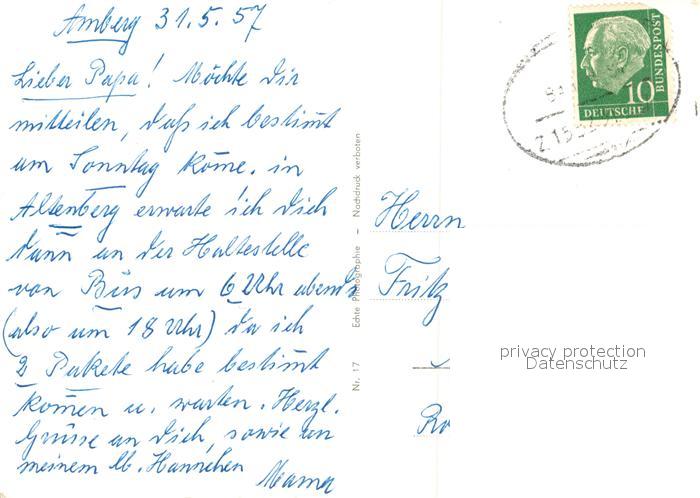 Amberg 31.5.57
Lieber Papa! Möchte Dir
mitteilen, daß ich bestim̅t
am Sonntag kom̅e. in
Altenberg erwarte ich Dich
dann an der Haltestelle
von Bus um 6 Uhr abends
(also um 18 Uhr) da ich
2 Pakete habe bestim̅t
kom̅en u. warten. Herzl.
Grüsse an Dich, sowie an
meinem lb. Hannchen
Mama
Nr. 17 Echte Photographie – Nachdruck verboten
BUNDESPOST
10
DEUTSCHE
Herrn
Fritz
privacy protection
Datenschutz